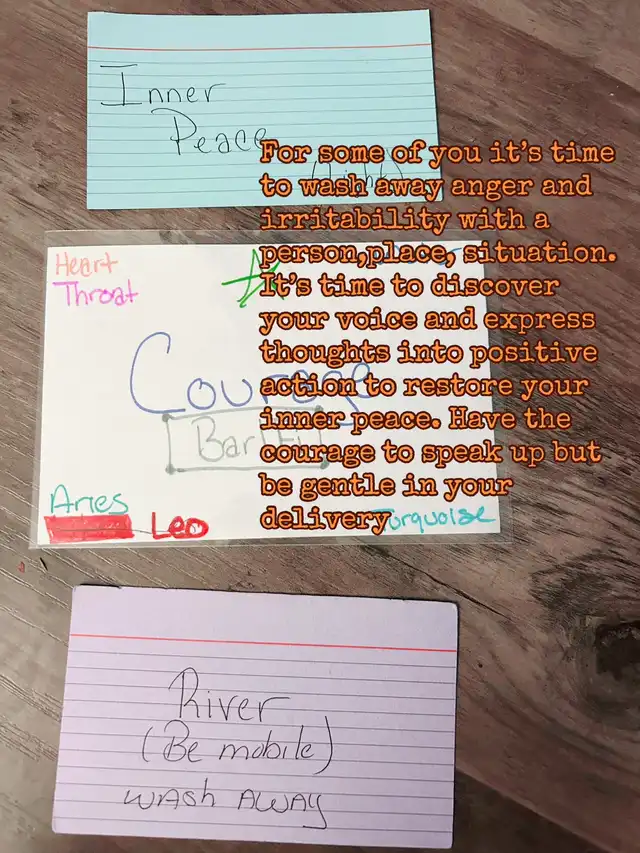 Inner
Peace
For some of you it's time
to wash away anger and
irritability with a
person,place, situation.
It's time to discover
your voice and express
thoughts into positive
action to restore your
inner peace. Have the
courage to speak up but
be gentle in your
delivery
Heart
Throat
Courage
Aries
Leo
Turquoise
River
(Be mobile)
wash away